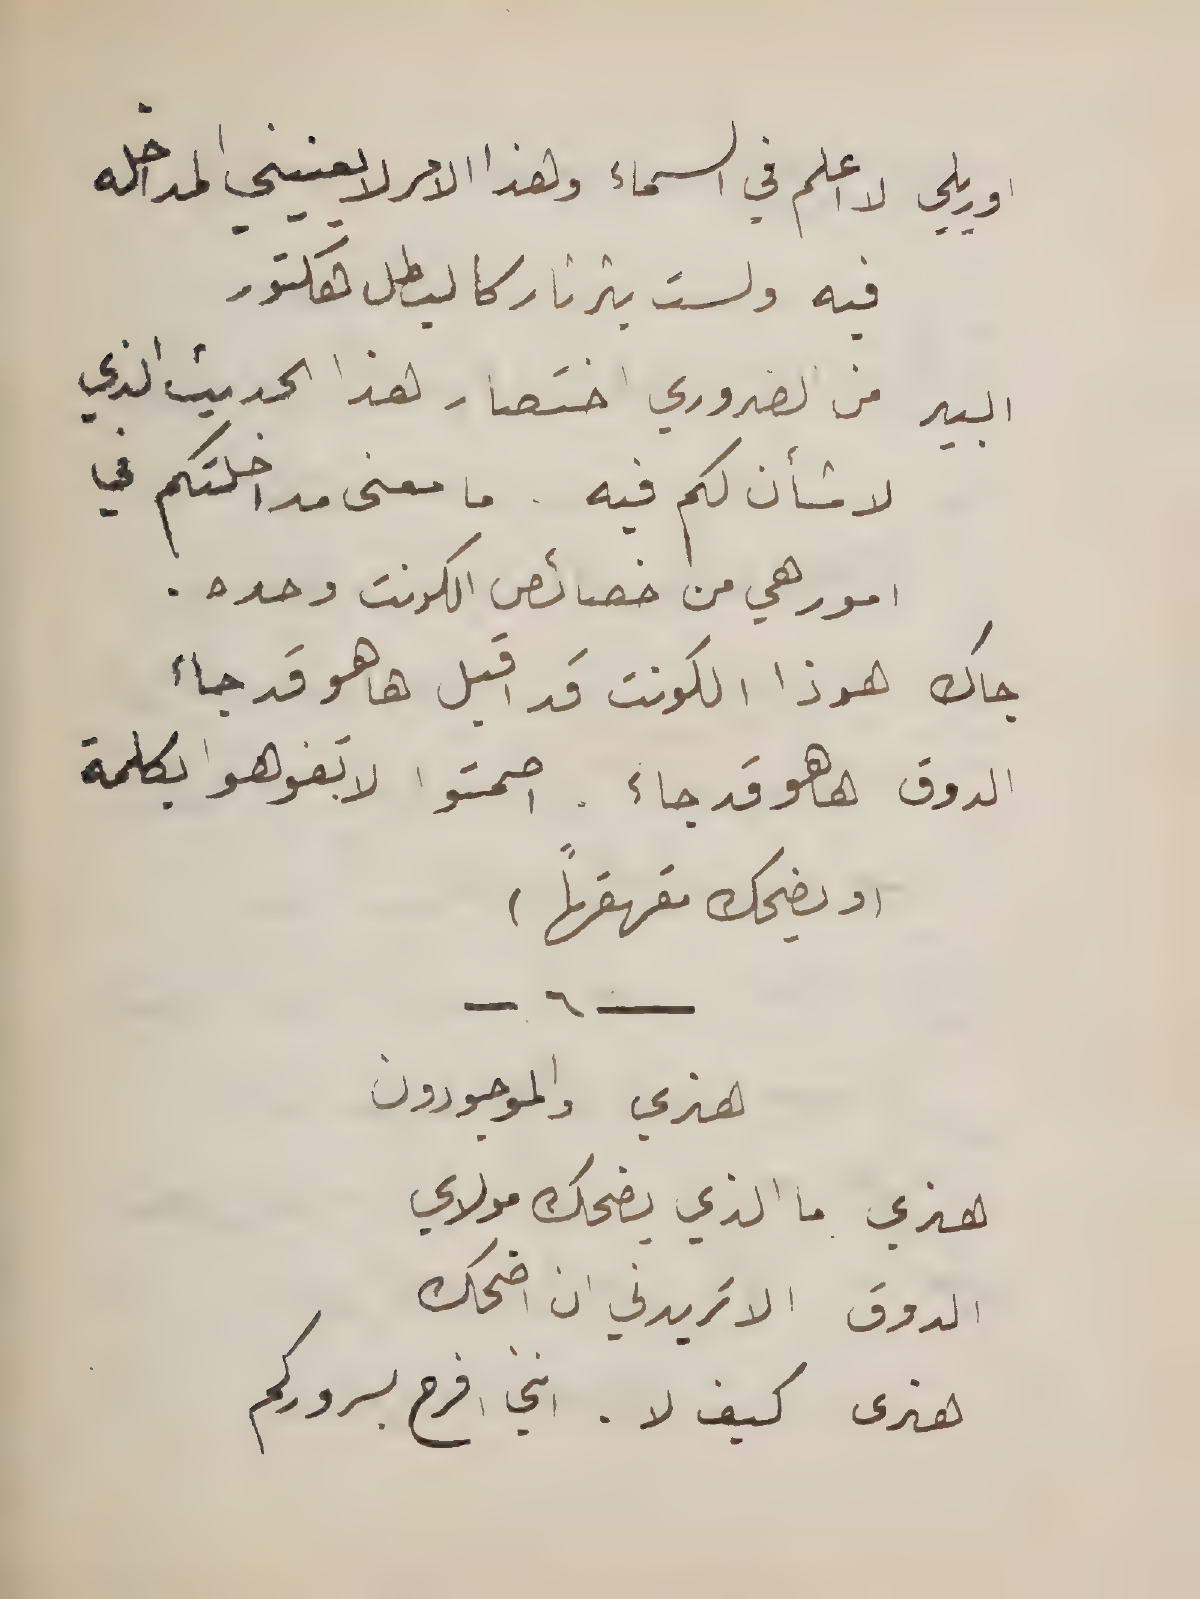 اوريلي لا اعلم في السماء وهذا الامر لا يعنيني المداخله
فيه ولست بثرثار كالبطل هكتور
البير من الضروري اختصار هذا الحديث الذي
لا شأن لكم فيه . ما معنى مداخلتكم في
امور هي من خصائص الكونت وحده .
جاك هوذا الكونت قد اقبل ها هو قد جاء
الدوق ها هو قد جاء . اصمتوا لا تفوهوا بكلمة
( ويضحك مقهقهاً )
— ٦ —
هنري والموجودون
هنري ما الذي يضحك مولاي
الدوق الا تريدني ان اضحك
هنرى كيف لا . انني افرح بسروركم